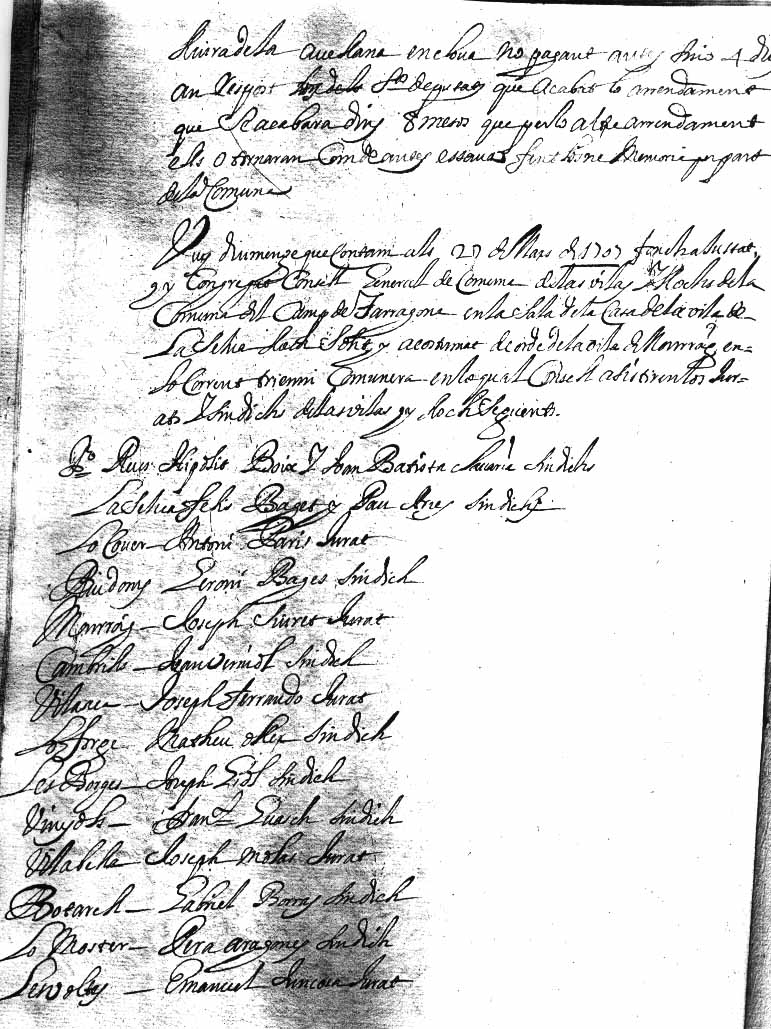 lliura de la avellana en clova no pagant antes sino 4 di
an respost dels Srs deputats que acabat lo arrendament
que se acabara dins 8 mesos que per lo altre arrendament
els o tornaran com de antes essent fent bone Memoria per part
de la Comuna
Vuy diumenge que Contam als 27 de Mars de 1707 fonch ajustat
y Congregat Consell General de Comuna de las vilas y llochs de la
Comuna del Camp de Tarragona en la Sala de la Casa de la vila de
La Selva lloch solit y acostumat de orde de la vila de Alcover en=
lo Corrent trienni Comunera en lo qual Consell assistiren los Jur-
ats y Sindichs de las vilas y llochs Seguents.
Po Reus Hipolit Boix y Joan Batista Sindichs
La Selva Felis Baget y Pau Sindichs
Lo Cover – Antoni Paris Jurat
Riudoms Geroni Bages Sindich
– Joseph Jurat
Cambrils – Joan Sindich
Vilaseca – Joseph Ferrando Jurat
Matheu Sindich
Les Borges – Joseph Gibl Sindich
Vinyols – Franch Guasch Sindich
Vilalbla Joseph Molas Jurat
Botarell – Gabriel Borras Sindich
Lo Moster – Pera Aragones Sindich
Les voltes – Emanuel Juncosa Jurat